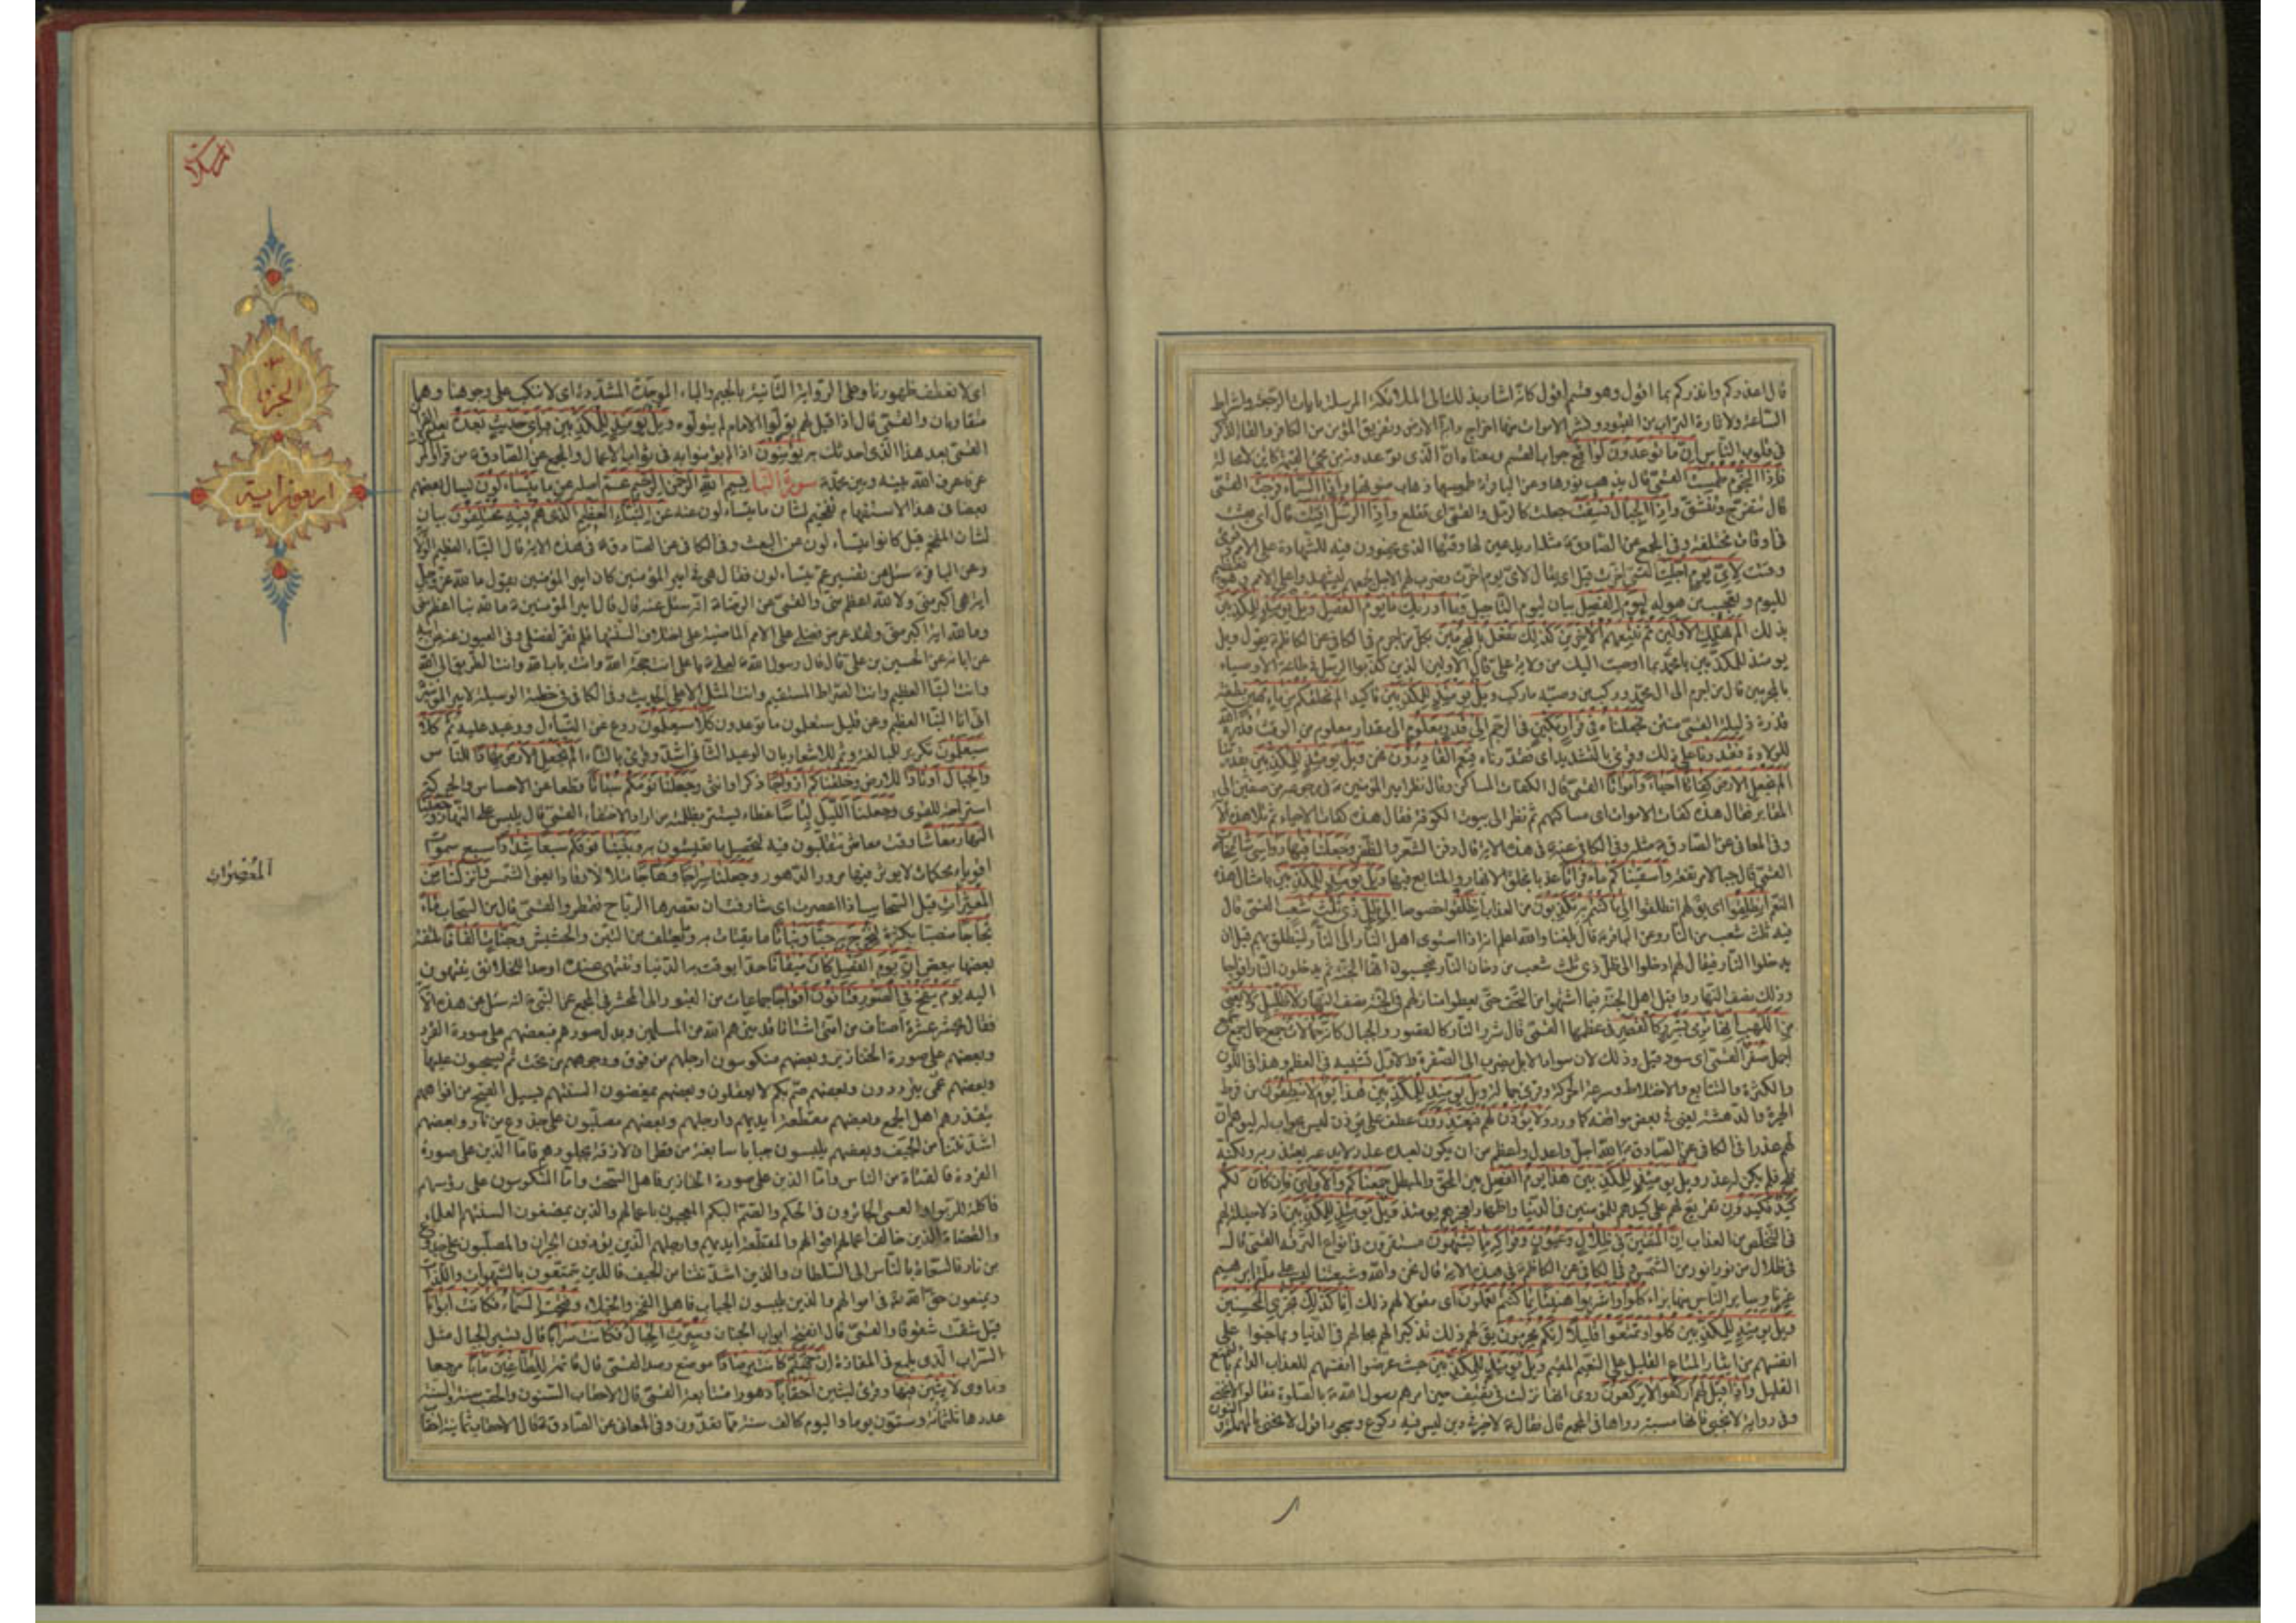 قال اعذركم وانذركم بما اقول وهو قسم اقول كانه اشار بذلك الى الملائكة المرسلة بايات الرجعة واشراط
الساعة ولاثارة التراب من القبور ونشر الاموات منها اخراج دابة الارض وتفريق المؤمن من الكافر والقاء الذكر
في قلوب الناس ان ما توعدون لواقع جواب القسم ومعناه ان الذي توعدونه من مجئ القيمة كاين لا محالة
فاذا النجوم طمست القمي قال يذهب نورها وعن الباقر ع طموسها ذهاب ضوئها واذا السماء فرجت القمي
قال تنفرج وتنشق واذا الجبال نسفت جعلت كالرمل والقمي اي تقلع واذا الرسل اقتت قال اي بعثت
في اوقات مختلفة وفي المجمع عن الصادق ع مثله اريد عين لها وقتها الذي يحضرون فيه للشهادة على الامم وقرئ
وقتت لاي يوم اجلت القمي اخرت قيل اي يقال لاي يوم اخرت وضرب لهم الاجل لجمعهم ليشهدوا على الامم وهو تعظيم
لليوم وتعجيب من هوله ليوم الفصل بيان ليوم التاجيل وما ادريك ما يوم الفصل ويل يومئذ للمكذبين
بذلك الم نهلك الاولين ثم نتبعهم الاخرين كذلك نفعل بالمجرمين بكل من اجرم في الكافي عن الكاظم ع يقول ويل
يومئذ للمكذبين يا محمد بما اوحيت اليك من ولاية علي قال الاولين الذين كذبوا الرسل في طاعة الاوصياء
بالمجرمين قال من اجرم الى ال محمد وركب من وصيه ما ركب ويل يومئذ للمكذبين تاكيد الم نخلقكم من ماء مهين نطفة
قذرة ذليلة القمي منتن فجعلناه في قرار مكين في الرحم الى قدر معلوم الى مقدار معلوم من الوقت قدره الله
للولادة فقدرنا على ذلك وقرئ بالتشديد اي فقدرناه فنعم القادرون نحن ويل يومئذ للمكذبين بقدرتنا
الم نجعل الارض كفاتا احياء وامواتا القمي قال الكفات المساكن وقال نظر امير المؤمنين ع في رجوعه من صفين الى
المقابر فقال هذه كفات الاموات اي مساكنهم ثم نظر الى بيوت الكوفة فقال هذه كفات الاحياء ثم تلا هذه الا
وفي المعاني عن الصادق ع مثله وفي الكافي عنه ع في هذه الاية قال دفن الشعر والظفر وجعلنا فيها رواسي شامخات
القمي قال جبالا مرتفعة واسقيناكم ماء فراتا عذبا بخلق الانهار والمنابع فيها ويل يومئذ للمكذبين بامثال هذه
النعم انطلقوا اي يق لهم انطلقوا الى ما كنتم به تكذبون من العذاب انطلقوا خصوصا الى ظل ذي ثلث شعب القمي قال
فيه ثلث شعب من النار وعن الباقر ع قال بلغنا والله اعلم انه اذا استوى اهل النار الى النار لينطلق بهم قبل ان
يدخلوا النار فيقال لهم ادخلوا الى ظل ذي ثلث شعب من دخان النار فيحسبون انها الجنة ثم يدخلون النار افواجا
وذلك نصف النهار واقبل اهل الجنة فيما اشتهوا من التحف حتى يعطوا منازلهم في الجنة نصف النهار لا ظليل ولا يغني
من اللهب انها ترمي بشرر كالقصر في عظمها القمي قال شرر النار كالقصور والجبال كانه جمالات جمع جمال جمع
اجمل صفر القمي اي سود قيل وذلك لان سواد الابل يضرب الى الصفرة والاول تشبيه في العظم وهذا في اللون
والكثرة والتتابع والاختلاط وسرعة الحركة وقرئ جمالة ويل يومئذ للمكذبين هذا يوم لا ينطقون من فرط
الحيرة والدهشة يعني في بعض مواقفه كما ورد ولا يؤذن لهم فيعتذرون عطف على يؤذن ليس بجواب له ليوهم ان
لهم عذرا في الكافي عن الصادق ع الله اجل واعدل واعظم من ان يكون لعبده عذر لا يدعه يعتذر به ولكنه
فلج فلم يكن له عذر ويل يومئذ للمكذبين هذا يوم الفصل بين الحق والمبطل جمعناكم والاولين فان كان لكم
كيد فكيدون تقريع لهم على كيدهم للمؤمنين في الدنيا واظهار لعجزهم يومئذ ويل يومئذ للمكذبين اذ لا حيلة لهم
في التخلص من العذاب ان المتقين في ظلال وعيون وفواكه مما يشتهون مستقرون في انواع الترفه القمي قال
في ظلال من نور انور من الشمس وفي الكافي عن الكاظم ع في هذه الاية قال نحن والله وشيعتنا ليس على ملة ابرهيم
غيرنا وساير الناس منها براء كلوا واشربوا هنيئا بما كنتم تعملون اي مقولا لهم ذلك انا كذلك نجزي المحسنين
ويل يومئذ للمكذبين كلوا وتمتعوا قليلا انكم مجرمون يق لهم ذلك تذكيرا لهم بحالهم في الدنيا وبما جنوا على
انفسهم من ايثار المتاع القليل على النعيم المقيم ويل يومئذ للمكذبين حيث عرضوا انفسهم للعذاب الدائم بالتمتع
القليل واذا قيل لهم اركعوا لا يركعون روى انها نزلت في ثقيف حين امرهم رسول الله ص بالصلوة فقالوا لا ننحني
وفي رواية لا نجبي فانها مسبة رواها في المجمع قال فقال ع لا خير في دين ليس فيه ركوع وسجود اقول لا نحني بالمهملة والنون
الجزؤ ٣٠
اربعون اية
المعصرات
اي لا نعطف ظهورنا وعلى الرواية الثانية بالجيم والباء الموحدة المشددة اي لا ننكب على وجوهنا وهما
متقاربان والقمي قال اذا قيل لهم تولوا الامام لم يتولوه ويل يومئذ للمكذبين فباي حديث بعده بعد القران
القمي بعد هذا الذي احدثك به يؤمنون اذا لم يؤمنوا به في ثواب الاعمال والمجمع عن الصادق ع من قرا والمرسلات
عرفا عرف الله بينه وبين محمد ص سورة النبأ بسم الله الرحمن الرحيم عم اصله عن ما يتساءلون يسال بعضهم
بعضا في هذا الاستفهام تفخيم لشان ما يتساءلون عنه عن النباء العظيم الذي هم فيه مختلفون بيان
لشان المفخم قيل كانوا يتساءلون عن البعث وفي الكافي عن الصادق ع في هذه الاية قال النباء العظيم الولاية
وعن الباقر ع سئل عن تفسير عم يتساءلون فقال هي في امير المؤمنين كان امير المؤمنين يقول ما لله عز وجل
اية هي اكبر مني ولا لله اعظم مني والقمي عن الرضا ع انه سئل عنه قال قال امير المؤمنين ع ما لله نبا اعظم مني
وما لله اية اكبر مني ولقد عرض فضلي على الامم الماضية على اختلاف السنتها فلم تقر لفضلي وفي العيون عنه عن ابيه
عن ابائه عن الحسين بن علي قال قال رسول الله ص لعلي ع يا علي انت حجة الله وانت باب الله وانت الطريق الى الله
وانت النبا العظيم وانت الصراط المستقيم وانت المثل الاعلى الحديث وفي الكافي في خطبة الوسيلة لامير المؤمنين
اني انا النبا العظيم وعن قليل ستعلمون ما توعدون كلا سيعلمون ردع عن التساءل ووعيد عليه ثم كلا
سيعلمون تكرير للمبالغة وثم للاشعار بان الوعيد الثاني اشد وقرئ بالتاء الم نجعل الارض مهادا للناس
والجبال اوتادا للارض وخلقناكم ازواجا ذكرا وانثى وجعلنا نومكم سباتا قطعا عن الاحساس والحركة
استراحة للقوى وجعلنا الليل لباسا غطاء يستتر بظلمته من اراد الاختفاء القمي قال يلبس على النهار وجعلنا
النهار معاشا وقت معاش تتقلبون فيه لتحصيل ما تعيشون به وبنينا فوقكم سبعا شدادا سبع سموات
اقوياء محكمات لا يؤثر فيها مرور الدهور وجعلنا سراجا وهاجا متلالا وقادا يعني الشمس وانزلنا من
المعصرات قيل السحايب اذا اعصرت اي شارفت ان تعصرها الرياح فتمطر والقمي قال من السحاب ماء
ثجاجا منصبا بكثرة لنخرج به حبا ونباتا ما يقتات به وما يعتلف من التبن والحشيش وجنات الفافا ملتفة
بعضها ببعض ان يوم الفصل كان ميقاتا حدا يوقت به الدنيا وتنتهي عنده او حدا للخلائق ينتهون
اليه يوم ينفخ في الصور فتاتون افواجا جماعات من القبور الى المحشر في المجمع عن النبي ص انه سئل عن هذه الا
فقال يحشر عشرة اصناف من امتي اشتاتا قد ميزهم الله من المسلمين وبدل صورهم فبعضهم على صورة القرد
وبعضهم على صورة الخنازير وبعضهم منكوسون ارجلهم من فوق ووجوههم من تحت ثم يسحبون عليها
وبعضهم عمي يترددون وبعضهم صم بكم لا يعقلون وبعضهم يمضغون السنتهم فيسيل القيح من افواههم
يتقذرهم اهل الجمع وبعضهم مقطعة ايديهم وارجلهم وبعضهم مصلبون على جذوع من نار وبعضهم
اشد نتنا من الجيف وبعضهم يلبسون جبابا سابغة من قطران لازقة بجلودهم فاما الذين على صورة
القردة فالقتات من الناس واما الذين على صورة الخنازير فاهل السحت واما المنكوسون على رؤسهم
فاكلة الربوا والعمي الجائرون في الحكم والصم البكم المعجبون باعمالهم والذين يمضغون السنتهم العلماء
والقضاة الذين خالف اعمالهم اقوالهم والمقطعة ايديهم وارجلهم الذين يؤذون الجيران والمصلبون على جذوع
من نار فالسعاة بالناس الى السلطان والذين اشد نتنا من الجيف فالذين يتمتعون بالشهوات واللذات
ويمنعون حق الله تع في اموالهم والذين يلبسون الجباب فاهل الفخر والخيلاء وفتحت السماء فكانت ابوابا
قيل شقت شقوقا والقمي قال انفتح ابواب الجنان وسيرت الجبال فكانت سرابا قال تسير الجبال مثل
السراب الذي يلمع في المفازة ان جهنم كانت مرصادا موضع رصد القمي قال قائمة للطاغين مابا مرجعا
وماوى لابثين فيها وقرئ لبثين احقابا دهورا متتابعة القمي قال الاحقاب السنون والحقب سنة والسنة
عددها ثلثمائة وستون يوما واليوم كالف سنة مما تعدون وفي المعاني عن الصادق ع قال الاحقاب ثمانية احقا